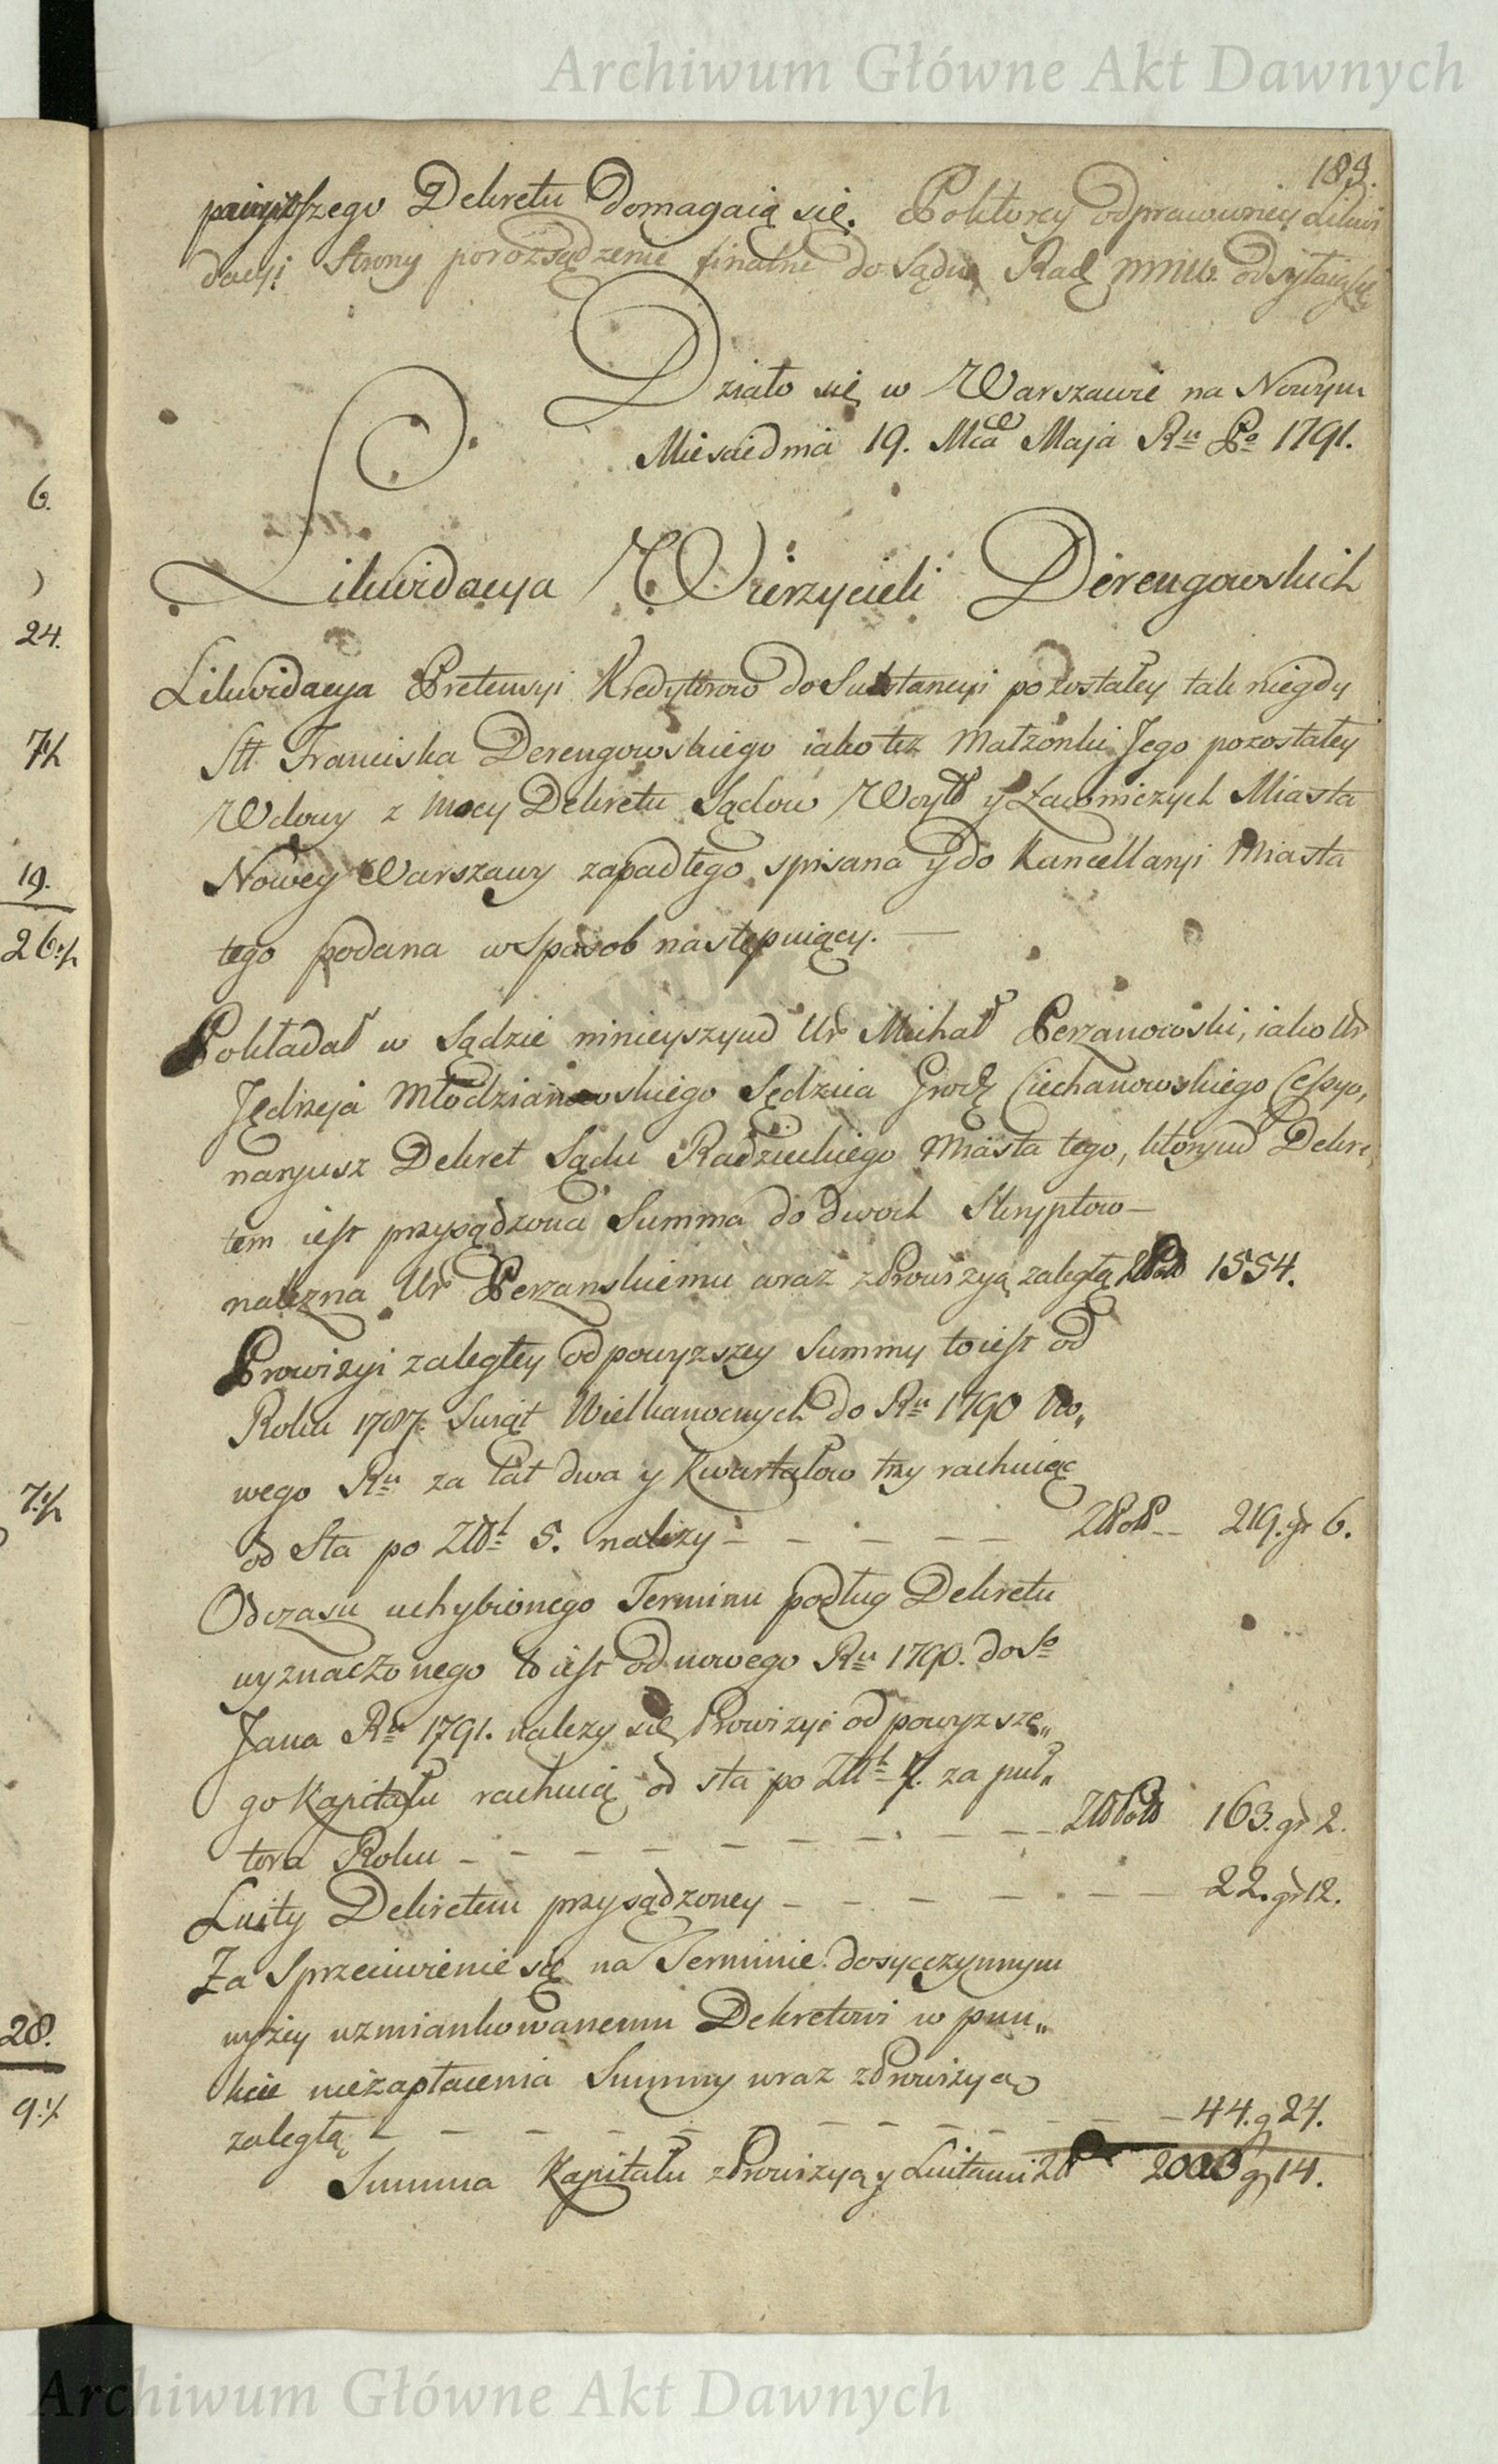 Archiwum Główne Akt Dawnych
183.
powyższego Dekretu domagaią się. Po ktorey odprawioney Likwi
dacyi Strony po rozsądzenie finalne do Sądu Radz mnie odsyłaią się
Działo się w Warszawie na Nowym
Mieście dnia 19. Mca Maja Ru Po 1791.
Likwidacya Wierzycieli Derengowskich
Likwidacya Pretensyi Kredytorow do Substancyi pozostałey tak niegdy
Stt. Franciska Derengowskiego iako tez Małzonki Jego pozostałey
Wdowy z mocy Dekretu Sądow Woytt y Ławniczych Miasta
Nowey Warszawy zapadłego spisana y do Kancellaryi Miasta
tego podana w Sposob następuiący. —
Pokładał w Sądzie ninieyszym Ur Michał Perzanowski, iako Ur
Jędrzeja Młodzianowskiego Sędzica Grodz Ciechanowskiego Cessyo,
naryusz Dekret Sądu Radzieckiego Miasta tego, ktorym Dekre,
tem iest przysądzona Summa do dwoch Skryptow —
nalezna Ur Perzanskiemu wraz z Prowizyą zaległą Złł Pol 1554.
Prowizyi zaległey od powyzszey Summy to iest od
Roku 1787. Swiąt Wielkanocnych do Ru 1790 No,,
wego Ru za lat dwa y Kwartałow trzy rachuiąc
od Sta po Złł 5. nalezy — — — — — Złł Pol — 219. gr 6.
Od czasu uchybionego Terminu podług Dekretu
wyznaczonego to iest od nowego Ru 1790. do So
Jana Ru 1791. nalezy się Prowizyi od powyzsze,,
go Kapitału rachuią od sta po Złł 7. za puł,,
tora Roku — — — — — — — — — Złł Pol 163. gr 2.
Luity Dekretem przysądzoney — — — — — — 22. gr 12.
Za Sprzeciwienie się na Terminie dosycczynnym
wyżey wzmiankowanemu Dekretowi w pun,,
kcie niezapłacenia Summy wraz z Prowizyą
zaległą — — — — — — — — — — — 44. g 24.
Summa Kapitału z Prowizyą y Luitami Zł 2003 g 14.
6.
24.
7½
19.
26½
7½
28.
9½
Archiwum Główne Akt Dawnych